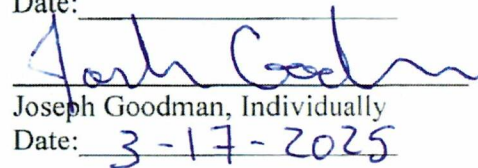 Date:
Josh Goodman
Joseph Goodman, Individually
Date: 3-17-2025